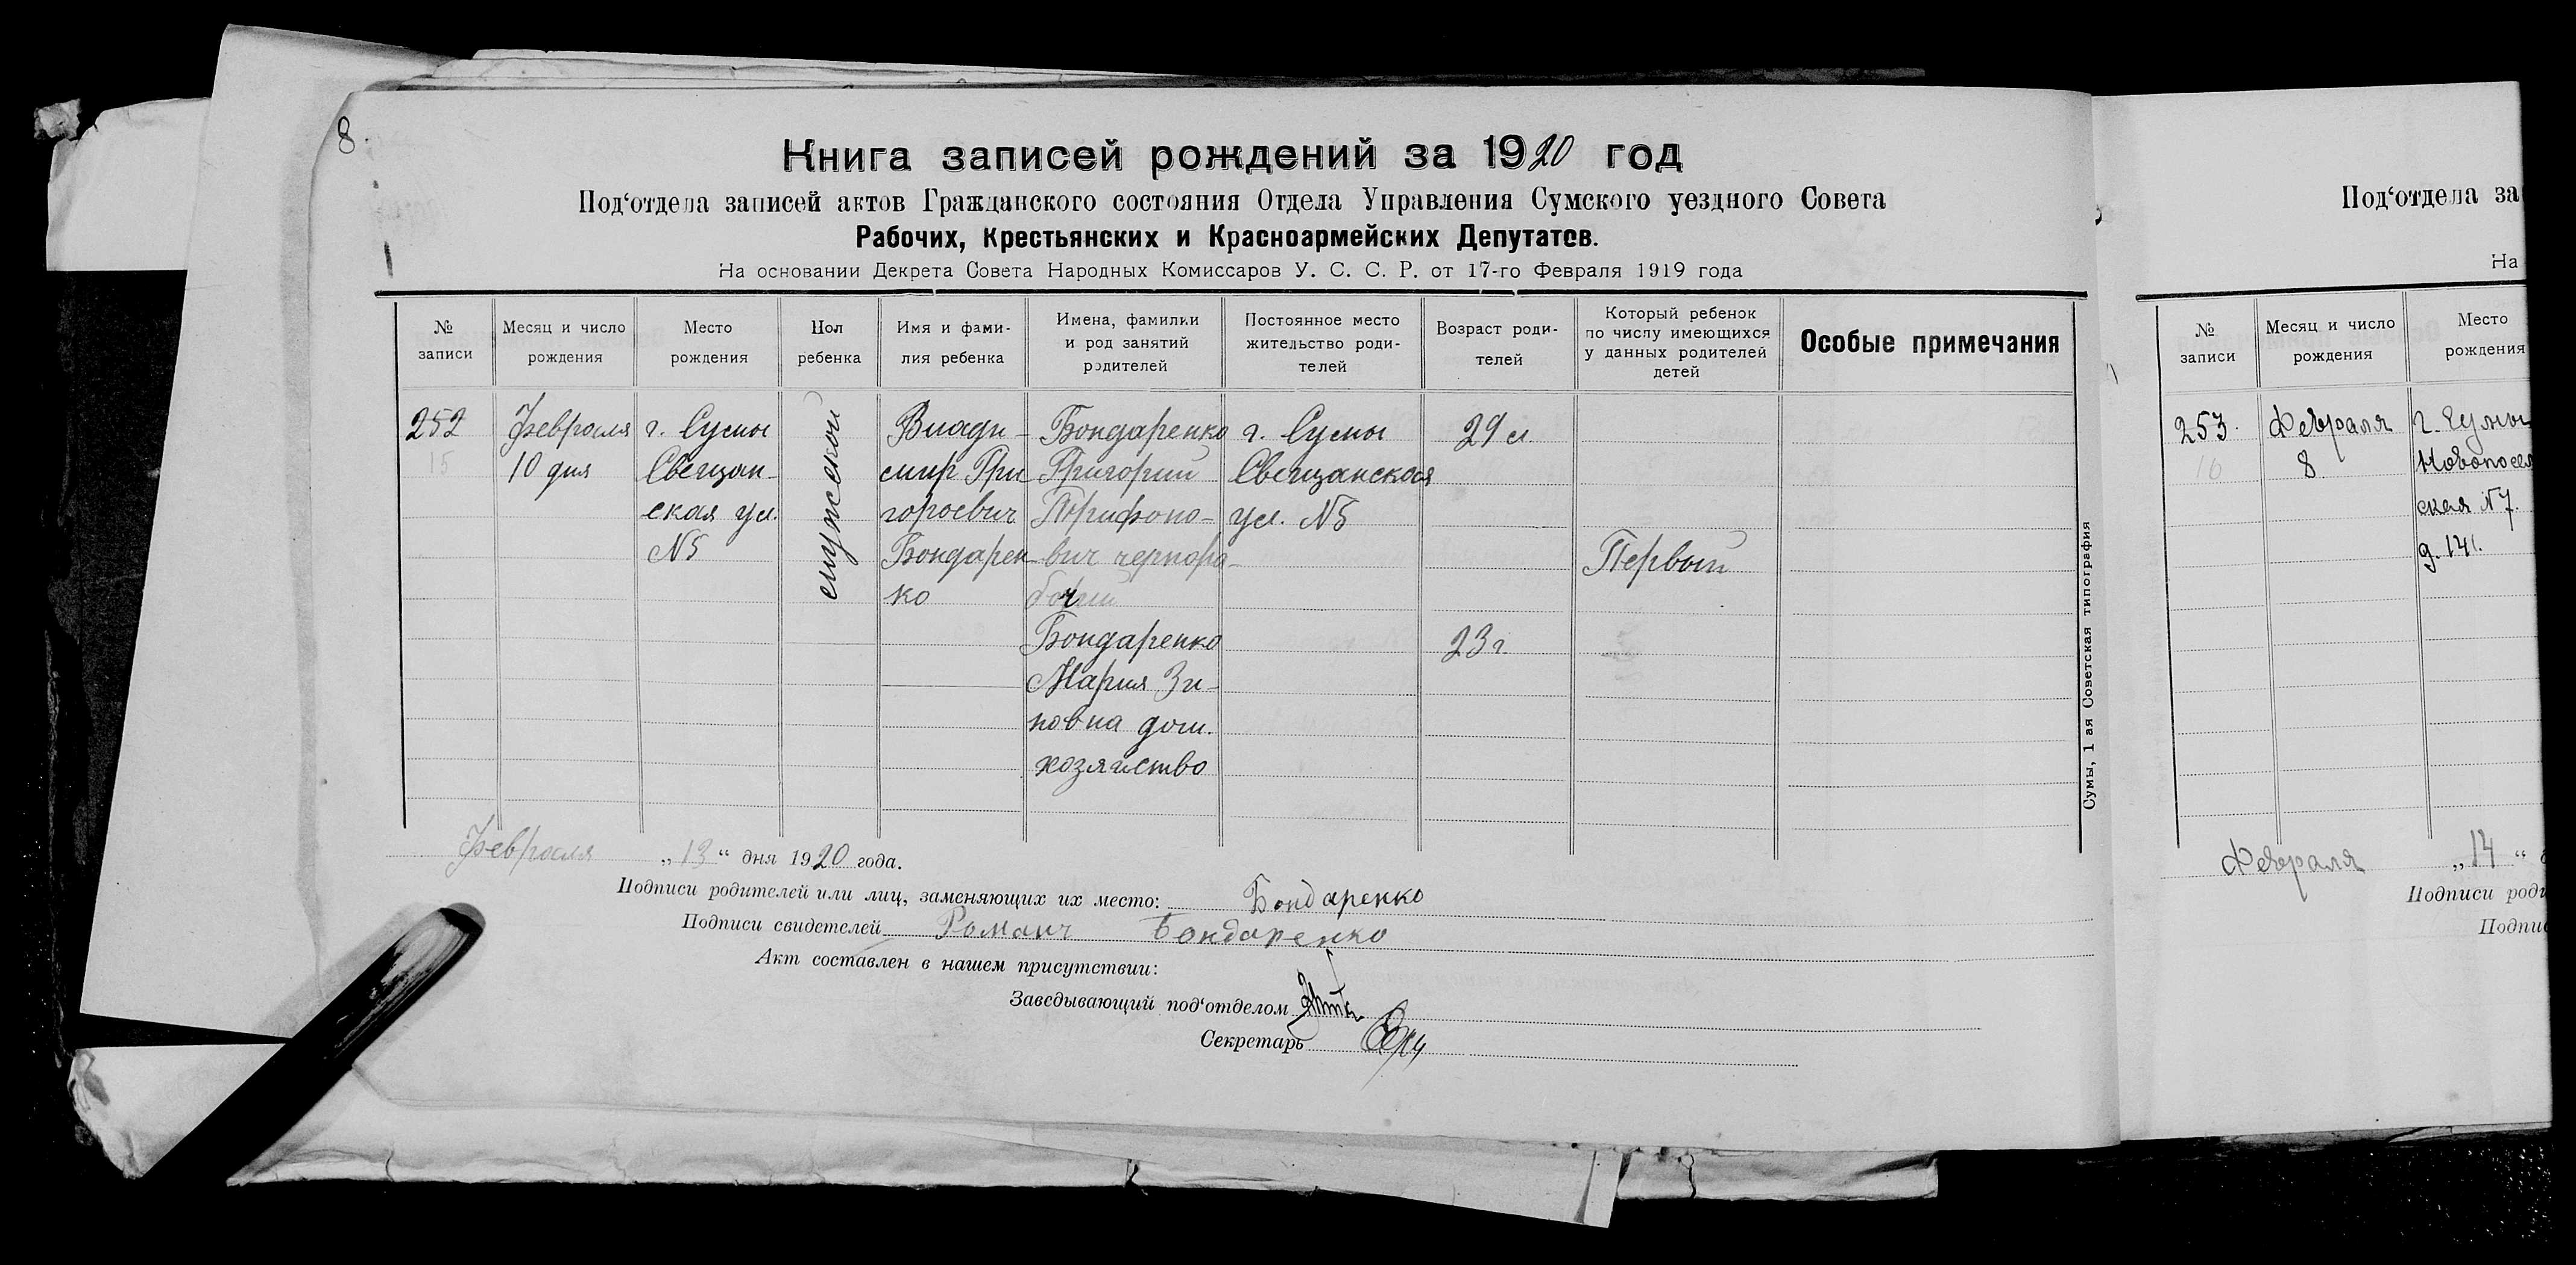 8.
Книга записей рождений за 1920 год
Под‘отдела записей актов Гражданского состояния Отдела Управления Сумского уездного Совета
Рабочих, Крестьянских и Красноармейских Депутатов.
На основании Декрета Совета Народных Комиссаров У. С. С. Р. от 17-го Февраля 1919 года
№
записи
Месяц и число
рождения
Место
рождения
Пол
ребенка
Имя и фами-
лия ребенка
Имена, фамилии
и род занятий
родителей
Постоянное место
жительство роди-
телей
Возраст роди-
телей
Который ребенок
по числу имеющихся
у данных родителей
детей
Особые примечания
252
15
Февраля
10 дня
г. Сумы
Свещан-
ская ул.
N5
мужской
Влади-
мир Гри
гороевич
Бондарен-
ко
Бондаренко
Григорий
вич чернора-
бочий
Бондаренко
Мария Зи-
новна дом.
хозяйство
г. Сумы
Свещанская
ул. N5
29 л.
23 г.
Первый
Февраля „13“ дня 1920 года.
Подписи родителей или лиц, заменяющих их место: Бондаренко
Подписи свидетелей Бондаренко
Акт составлен в нашем присутствии:
Заведывающий под‘отделом
Секретарь
Сумы, 1 ая Советская типография
Под‘отдела за
На
№
записи
Месяц и число
рождения
Место
рождения
253.
16
Февраля
8
г. Сумы
Новопосел
ская N7.
д. 14
Февраля „14“
Подписи роди
Подпис